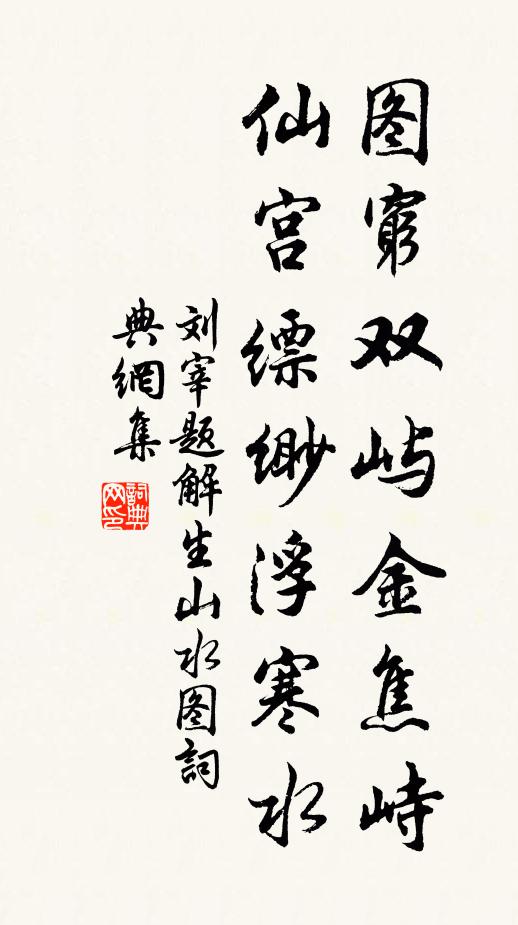 图窮双屿金焦峙
仙宫缥缈浮寒水
刘宰题解生山水图詞
典網集
詞典
网印